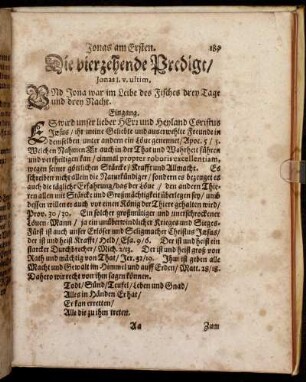 Jonas am Ersten. 189
Die vierzehende Predigt/
Jonas I. v. ultim.
UNd Jona war im Leibe des Fisches drey Tage
und drey Nacht.
Eingang.
ES wird unser lieber HErr und Heyland Christus
Jesus / ihr meine Geliebte und auserwehlte Freunde in
demselben / unter andern ein Löwe genennet / Apoc. 5 / 5.
Welchen Nahmen Er auch in der That und Wahrheit führen
und vertheidigen kan / einmal propter roboris excellentiam,
wegen seiner göttlichen Stärcke / Krafft und Allmacht. Es
schreiben nicht allein die Naturkündiger / sondern es bezeuget es
auch die tägliche Erfahrung / das der Löwe / den andern Thie-
ren allen mit Stärcke und Großmüthigkeit überlegen sey / und
dessen willen er auch vor einen König der Thiere gehalten wird /
Prov. 30 / 30. Ein solcher großmütiger und unerschrockener
Löwen-Mann / ja ein unüberwindlicher Krieges und Sieges-
Fürst ist auch unser Erlöser und Seligmacher Christus Jesus /
der ist und heist Krafft / Held / Esa. 9 / 6. Der ist und heist ein
starcker Durchbrecher / Mich. 2 / 13. Der ist und heist groß von
Rath und mächtig von That / Jer. 32 / 19. Ihm ist geben alle
Macht und Gewalt im Himmel und auff Erden / Matt. 28 / 18.
Dahero wir recht von ihm sagen können.
Todt / Sünd / Teufel / Leben und Gnad /
Alles in Händen Er hat /
Er kan erretten /
Alle die zu ihm treten.
Aa Zum